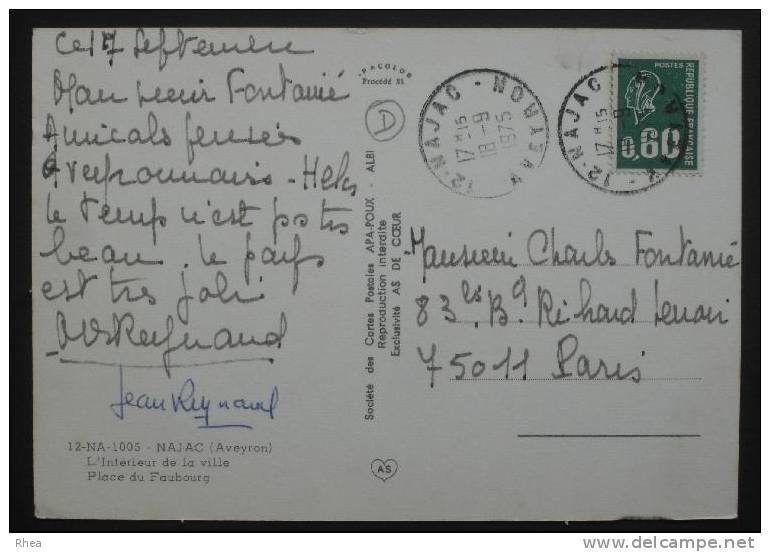 Ce 17 Septembre
Monsieur Fontanié
Amicals pensées
Aveyronnais - Helas
le temp n'est pas tres
beau. le pays
est tres joli
Reynaud
Jean Reynaud
12-NA-1005 - NAJAC (Aveyron)
L'Intérieur de la ville
Place du Faubourg
APACOLOR
Procédé 81
D
Société des Cartes Postales APA-POUX - ALBI
Reproduction interdite
Exclusivité AS DE CŒUR
AS
12-NAJAC
17H15
18-9
1975
POSTES
REPUBLIQUE FRANÇAISE
0,60
12-NAJAC
17H15
Monsieur Charles Fontanié
83 Bd Richard Lenoir
75011 Paris
Rhea
delcampe.net